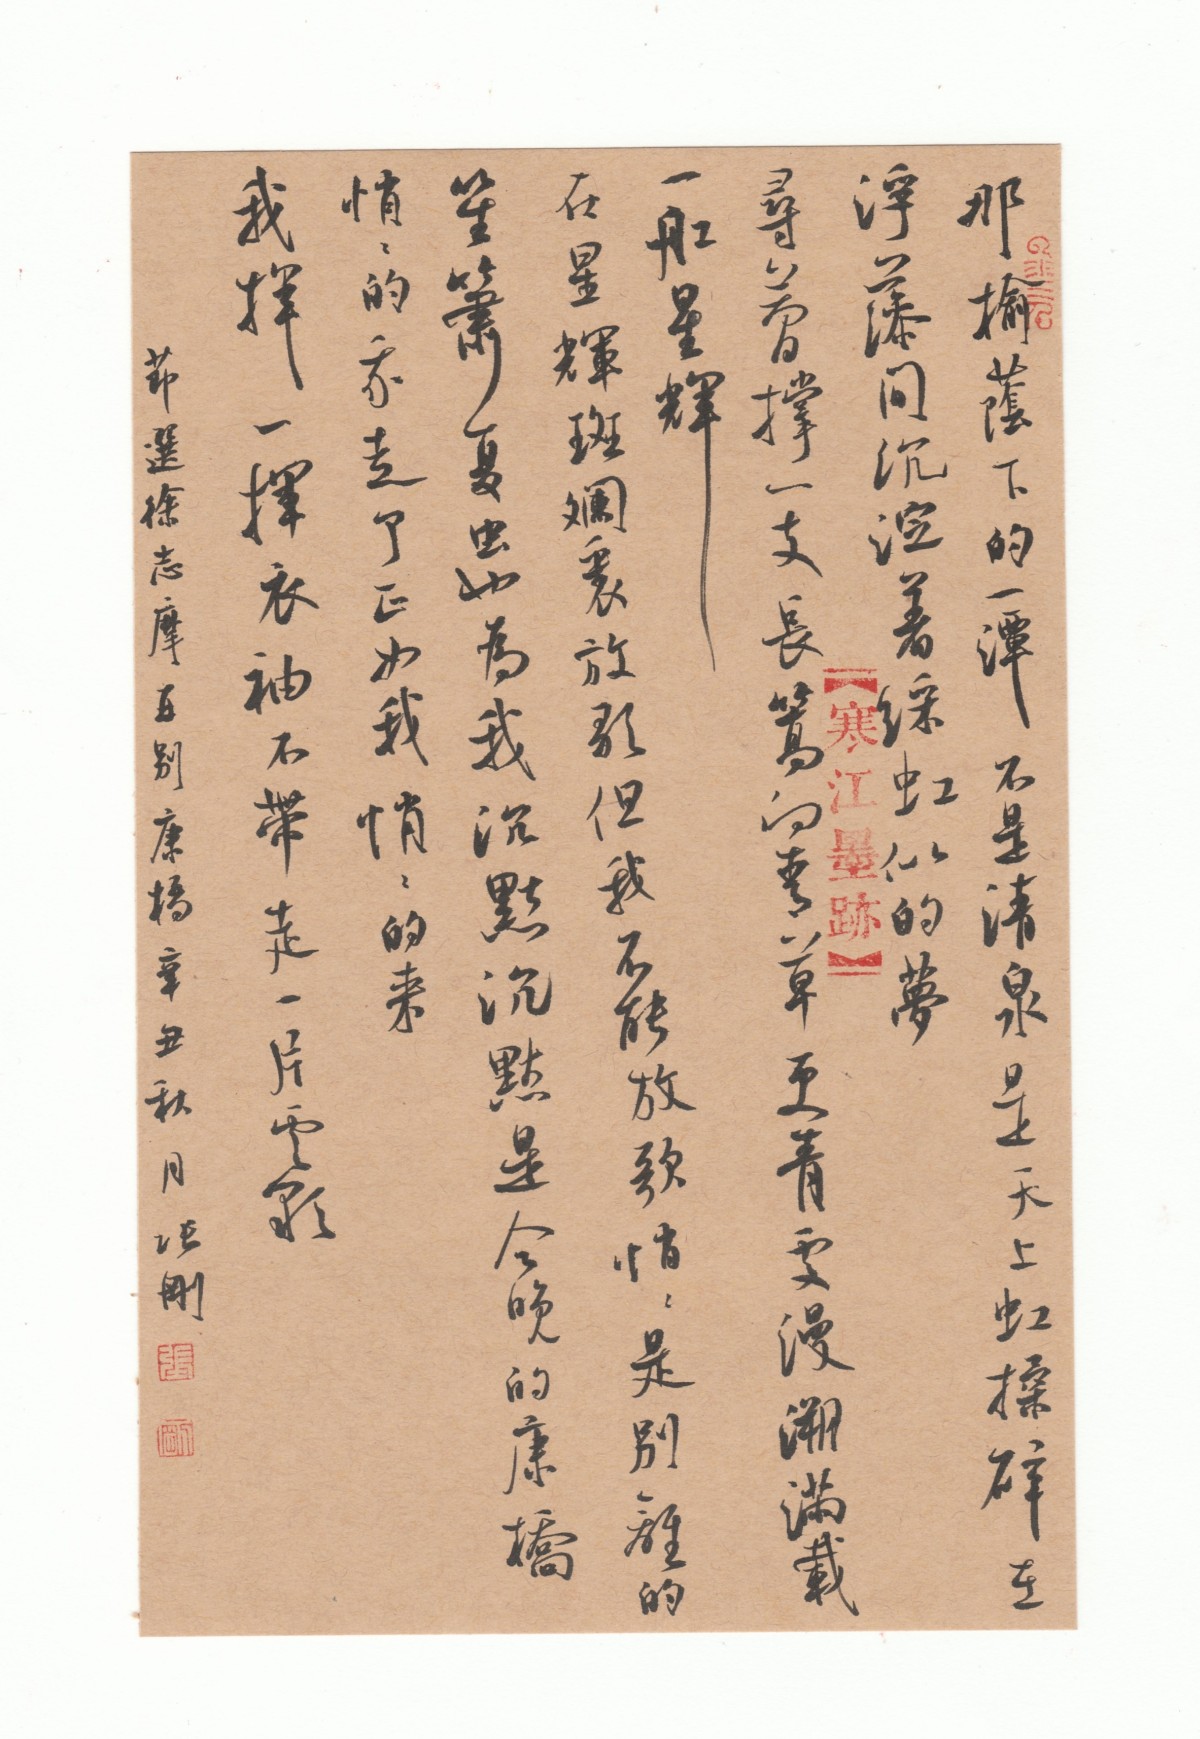 那榆蔭下的一潭不是清泉是天上虹揉碎在
浮藻間沉淀着綵虹似的夢
尋夢撐一支長篙向青草更青處漫溯滿載
一船星輝
在星輝斑斕裏放歌但我不能放歌悄〻是別離的
笙簫夏虫也為我沉默沉默是今晚的康橋
悄〻的我走了正如我悄〻的来
我揮一揮衣袖不帶走一片雲彩
節選徐志摩再别康橋辛丑秋月張剛
【寒江墨跡】
張
剛